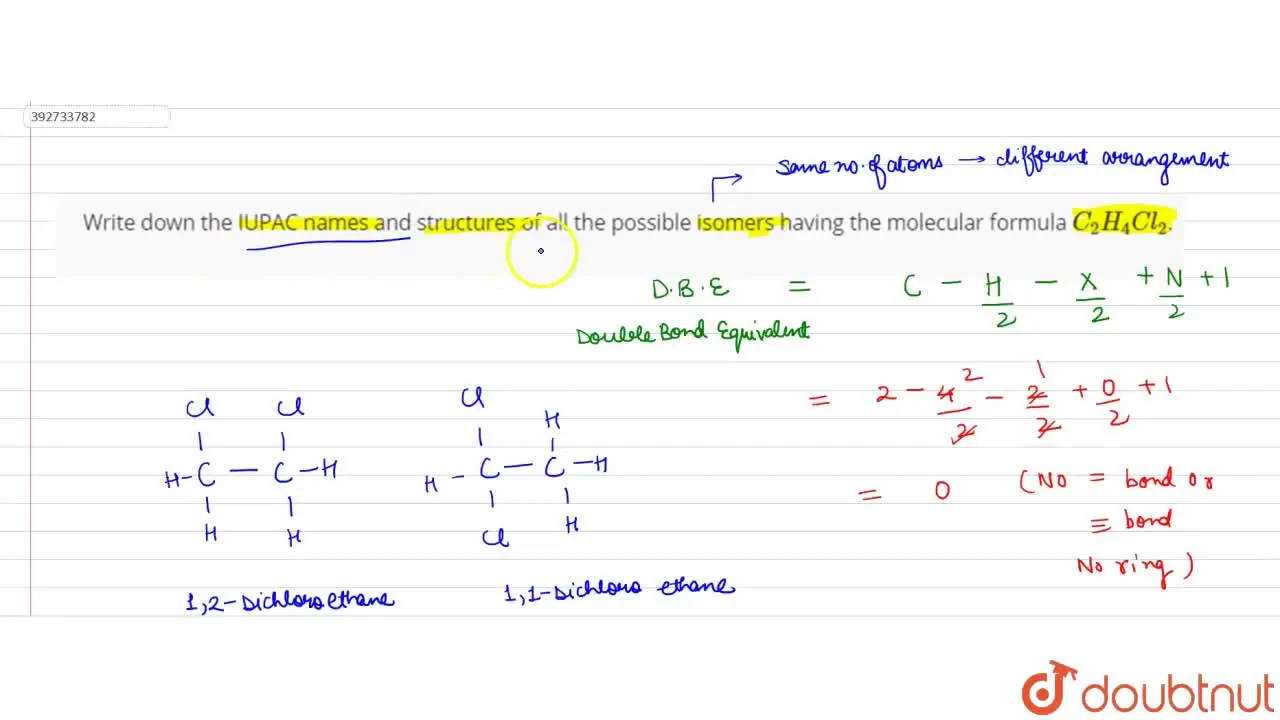 392733782
Same no. of atoms → different arrangement
Write down the IUPAC names and structures of all the possible isomers having the molecular formula C₂H₄Cl₂.
D.B.E = C - H/2 - X/2 + N/2 + 1
Double Bond Equivalent
= 2 - 4/2 2 - 2/2 1 + 0/2 + 1
= 0 (No = bond or
≡ bond
No ring)
Cl Cl
H-C-C-H
H H
1,2-Dichloroethane
Cl H
H-C-C-H
Cl H
1,1-Dichloro ethane
doubtnut